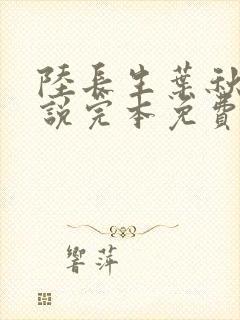 陸長生葉秋
說完本免費
響萍